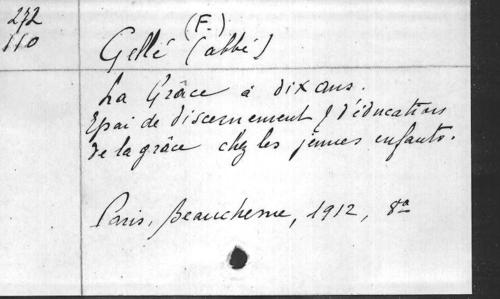 272
110
(F.)
Gellé (abbé)
La Grâce à dix ans.
Essai de discernement & d'éducation
de la grâce chez les jeunes enfants.
Paris, Beauchesne, 1912, 8º